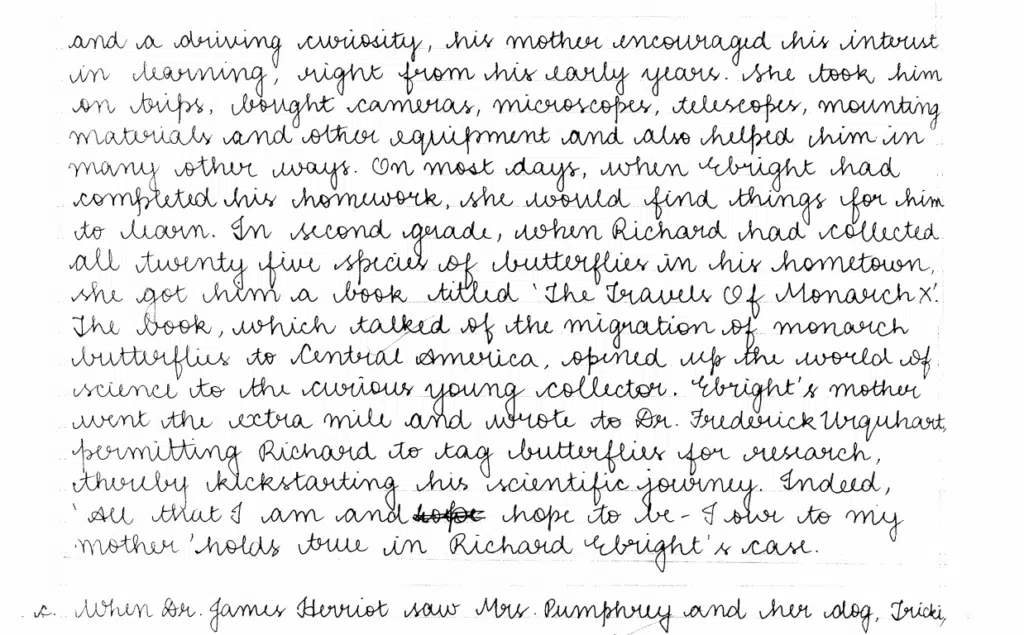 and a driving curiosity, his mother encouraged his interest
in learning, right from his early years. She took him
on trips, bought cameras, microscopes, telescopes, mounting
materials and other equipment and also helped him in
many other ways. On most days, when Ebright had
completed his homework, she would find things for him
to learn. In second grade, when Richard had collected
all twenty five species of butterflies in his hometown,
she got him a book titled 'The Travels Of Monarch X'.
The book, which talked of the migration of monarch
butterflies to Central America, opened up the world of
science to the curious young collector. Ebright's mother
went the extra mile and wrote to Dr. Frederick Urquhart,
permitting Richard to tag butterflies for research,
thereby kickstarting his scientific journey. Indeed,
'All that I am and hope to be - I owe to my
mother' holds true in Richard Ebright's case.
c. When Dr. James Herriot saw Mrs. Pumphrey and her dog, Tricki,